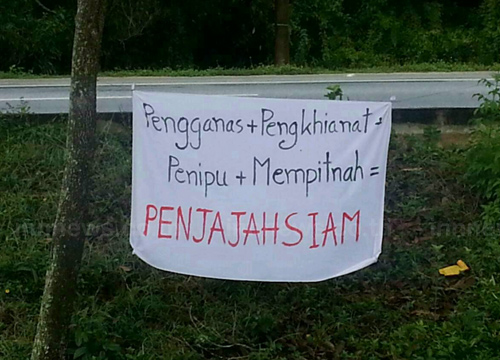 Pengganas+Pengkhianat+
Penipu + Mempitnah =
PENJAJAHSIAM